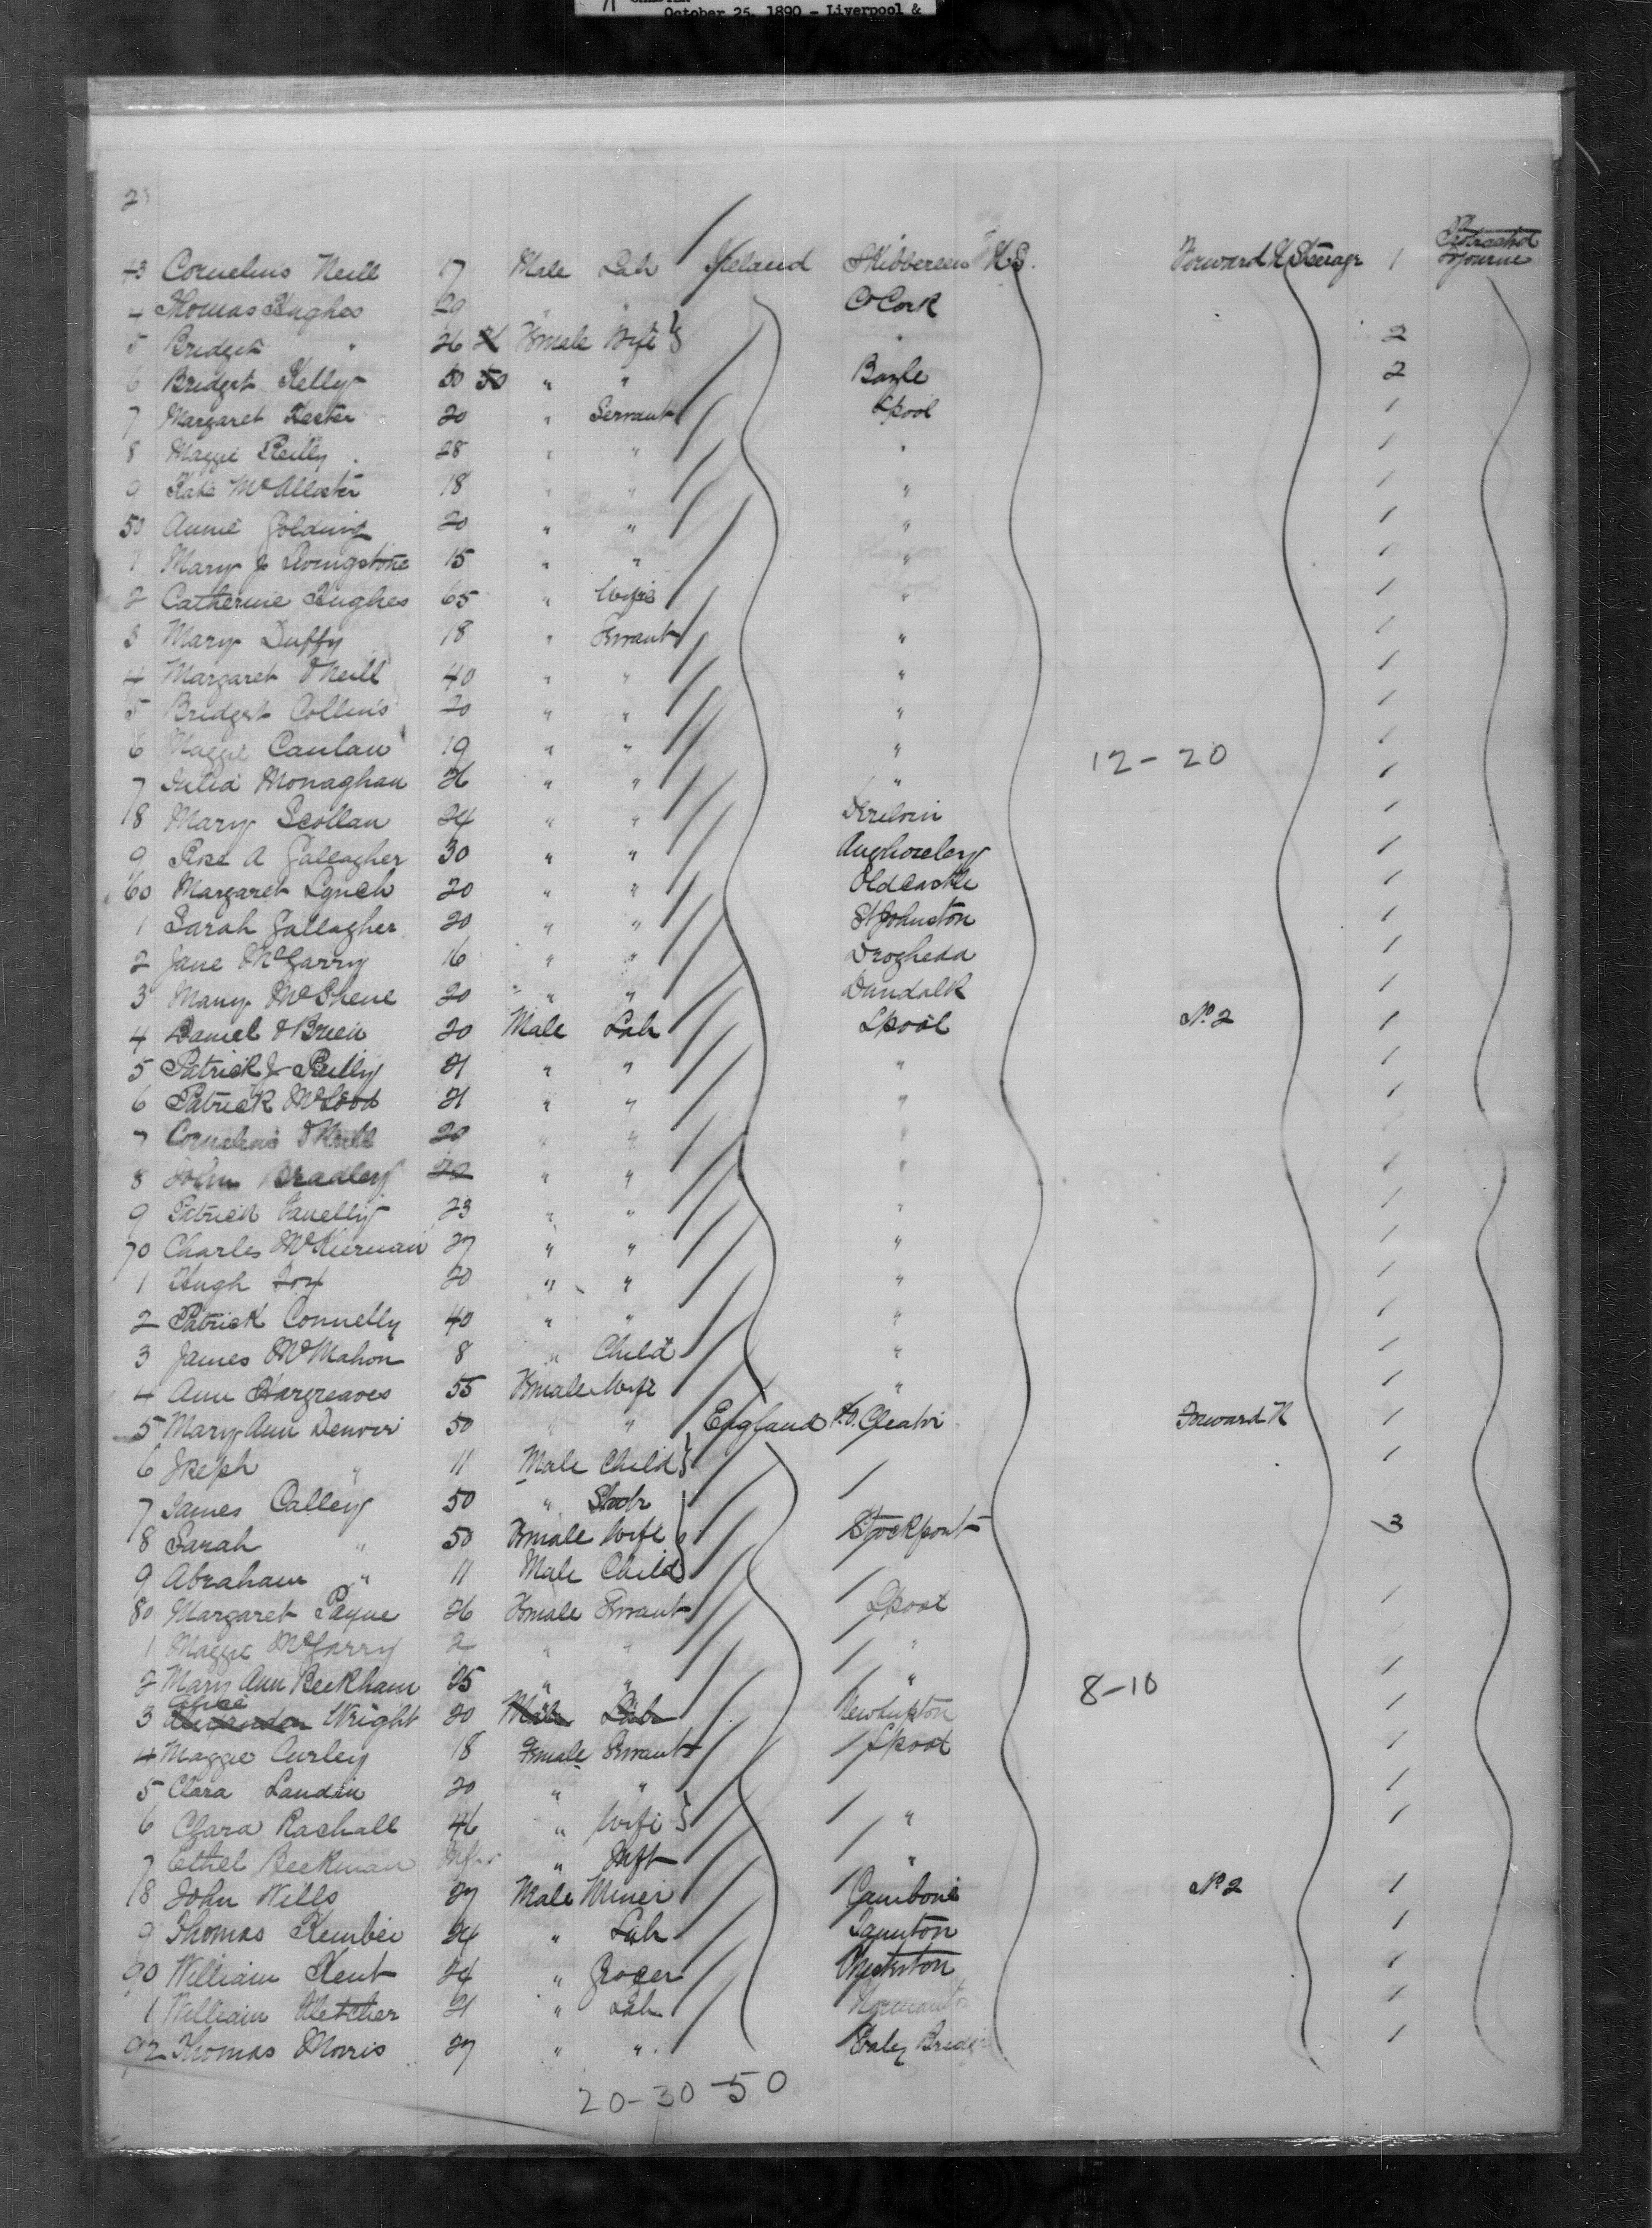 October 25, 1890 - Liverpool &
2
43 Cornelius Neill 17 Male Lab Ireland Skibbereen U.S. Forward U Steerage 1 Protracted Sojourn
4 Thomas Hughes 29 " " Co Cork
5 Bridget " 26 Female Wife " 2
6 Bridget Kelly 50 50 " " Boyle 2
7 Margaret Hester 20 " Servant Lpool 1
8 Maggie Reilly 28 " " " 1
9 Kate McAllister 18 " " " 1
50 Annie Golding 20 " " " 1
1 Mary J Livingstone 15 " " " 1
2 Catherine Hughes 65 " Wife " 1
3 Mary Duffy 18 " Servant " 1
4 Margaret O'Neill 40 " " " 1
5 Bridget Collins 20 " " " 1
6 Maggie Canlan 19 " " " 1
7 Julia Monaghan 26 " " " 12-20 1
8 Mary Scollan 24 " " 1
9 Rose A Gallagher 30 " " 1
60 Margaret Lynch 20 " " Oldcastle 1
1 Sarah Gallagher 20 " " St Johnston 1
2 Jane McGarry 16 " " Drogheda 1
3 Mary McShene 20 " " Dundalk 1
4 Daniel O'Brien 20 Male Lab Lpool No 2 1
5 Patrick J Reilly 21 " " " 1
6 Patrick McLeod 21 " " " 1
7 Cornelius O'Neill 20 " " "
8 John Bradley 22 " " " 1
9 Patrick 23 " " " 1
70 Charles McKiernan 27 " " " 1
1 Hugh Fox 20 " " " 1
2 Patrick Connelly 40 " " " 1
3 James McMahon 8 " Child " 1
4 Ann Hargreaves 55 Female Wife " 1
5 Mary Ann Denvir 50 " " England Cleator Forward U 1
6 Joseph " 11 Male Child 1
7 James Calley 50 "
8 Sarah " 50 Female Wife Stockport 3
9 Abraham " 11 Male Child
80 Margaret Payne 26 Female Servant Lpool 1
1 Maggie McGarry 2 " " "
2 Mary Ann Beckham 25 " " " 8-10 1
3 Alice Alexander Wright 20 Male Lab 1
4 Maggie Curley 18 Female Servant Lpool 1
5 Clara Landin 20 " " 1
6 Clara Rachall 46 " Wife " 1
7 Ethel Beckman " Inft "
8 John Wills 27 Male Miner Camborne No 2 1
9 Thomas Kember 24 " Lab Taunton 1
90 William Kent 24 " Grocer Chesterton 1
1 William Fletcher 21 " Lab Normanton 1
92 Thomas Morris 27 " " Staley Bridge 1
20-30-50